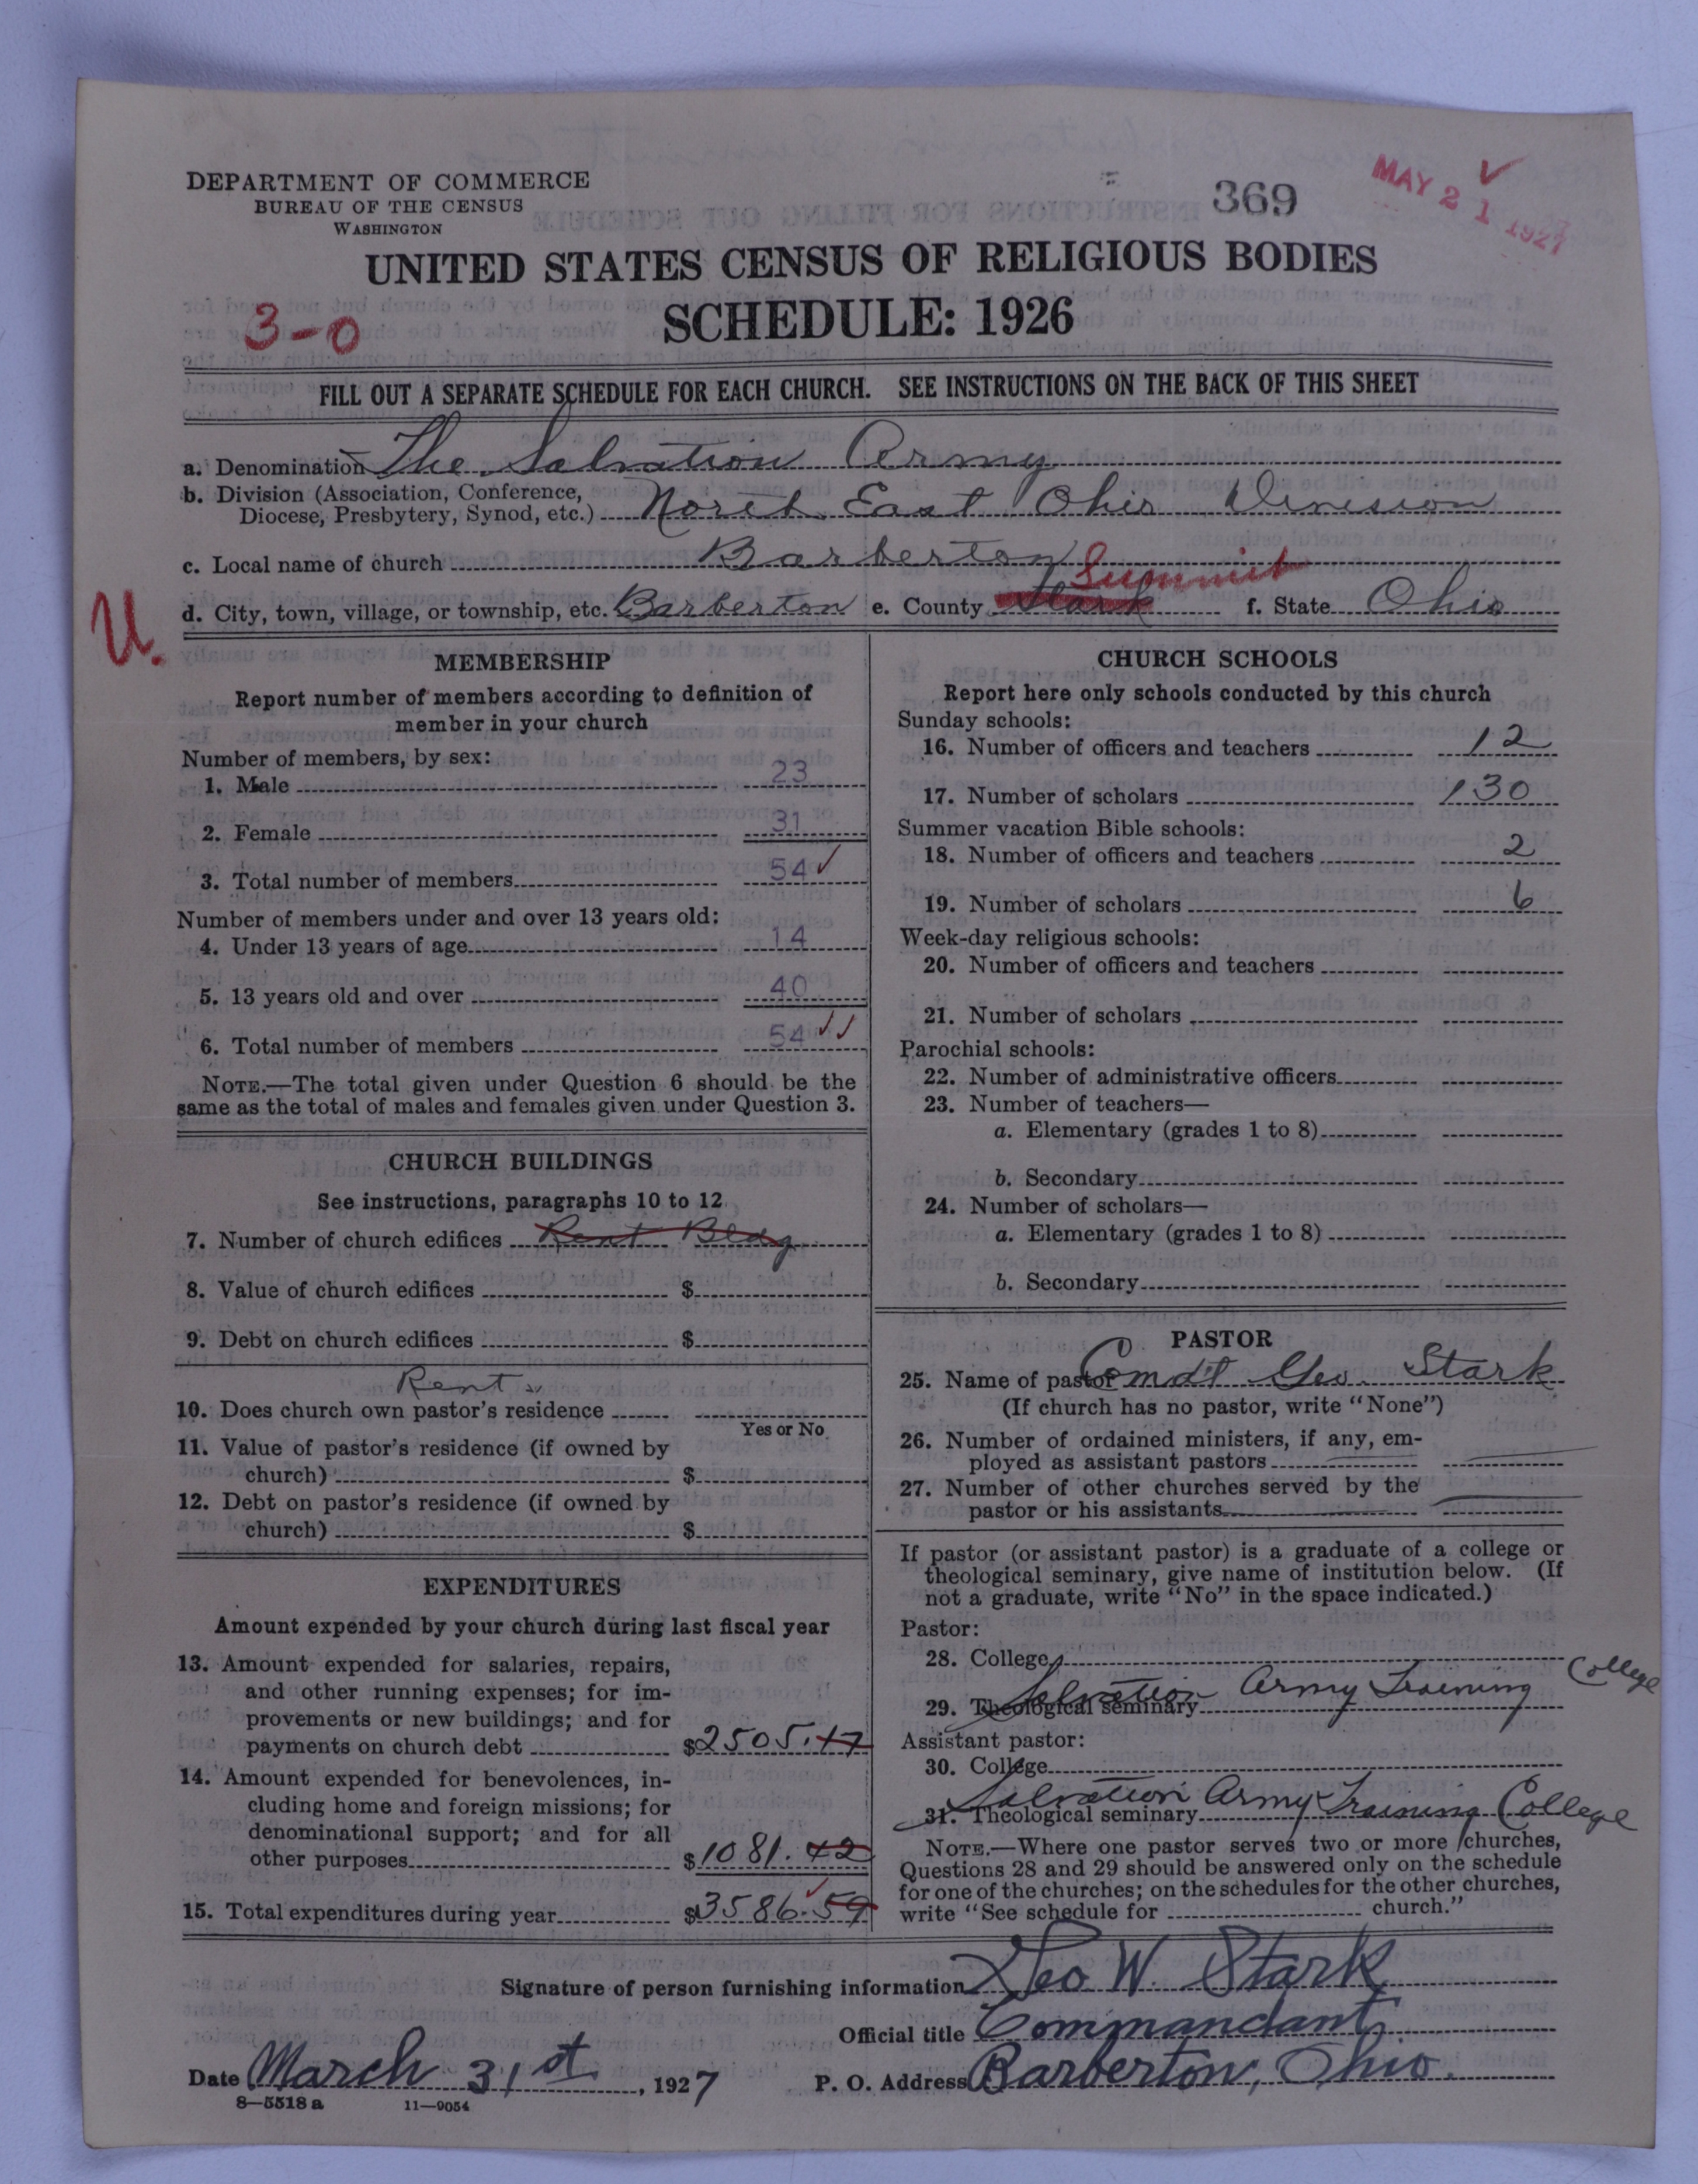 DEPARTMENT OF COMMERCE
BUREAU OF THE CENSUS
WASHINGTON
369
MAY 21 1927
UNITED STATES CENSUS OF RELIGIOUS BODIES
SCHEDULE: 1926
3-0
FILL OUT A SEPARATE SCHEDULE FOR EACH CHURCH. SEE INSTRUCTIONS ON THE BACK OF THIS SHEET
a. Denomination The Salvation Army
b. Division (Association, Conference,
Diocese, Presbytery, Synod, etc.) North East Ohio Division
c. Local name of church Barberton
Summit
d. City, town, village, or township, etc. Barberton e. County Stark f. State Ohio
U.
MEMBERSHIP
Report number of members according to definition of
member in your church
Number of members, by sex:
1. Male 23
2. Female 31
3. Total number of members 54 ✓
Number of members under and over 13 years old:
4. Under 13 years of age 14
5. 13 years old and over 40
6. Total number of members 54 ✓✓
NOTE.—The total given under Question 6 should be the
same as the total of males and females given under Question 3.
CHURCH BUILDINGS
See instructions, paragraphs 10 to 12
7. Number of church edifices Rent Bldg
8. Value of church edifices $
9. Debt on church edifices $
Rent
10. Does church own pastor's residence
Yes or No
11. Value of pastor's residence (if owned by
church) $
12. Debt on pastor's residence (if owned by
church) $
EXPENDITURES
Amount expended by your church during last fiscal year
13. Amount expended for salaries, repairs,
and other running expenses; for im-
provements or new buildings; and for
payments on church debt $2505.17
14. Amount expended for benevolences, in-
cluding home and foreign missions; for
denominational support; and for all
other purposes $1081.42
15. Total expenditures during year $3586.59
CHURCH SCHOOLS
Report here only schools conducted by this church
Sunday schools:
16. Number of officers and teachers 12
17. Number of scholars 130
Summer vacation Bible schools:
18. Number of officers and teachers 2
19. Number of scholars 6
Week-day religious schools:
20. Number of officers and teachers
21. Number of scholars
Parochial schools:
22. Number of administrative officers
23. Number of teachers—
a. Elementary (grades 1 to 8)
b. Secondary
24. Number of scholars—
a. Elementary (grades 1 to 8)
b. Secondary
PASTOR
25. Name of pastor Comdt Geo. Stark
(If church has no pastor, write "None")
26. Number of ordained ministers, if any, em-
ployed as assistant pastors
27. Number of other churches served by the
pastor or his assistants
If pastor (or assistant pastor) is a graduate of a college or
theological seminary, give name of institution below. (If
not a graduate, write "No" in the space indicated.)
Pastor:
28. College
29. Theological seminary Salvation Army Training College
Assistant pastor:
30. College
31. Theological seminary Salvation Army Training College
NOTE.—Where one pastor serves two or more churches,
Questions 28 and 29 should be answered only on the schedule
for one of the churches; on the schedules for the other churches,
write "See schedule for church."
Signature of person furnishing information Geo W. Stark
Official title Commandant
Date March 31st, 1927 P. O. Address Barberton, Ohio.
8—5518 a 11—9054